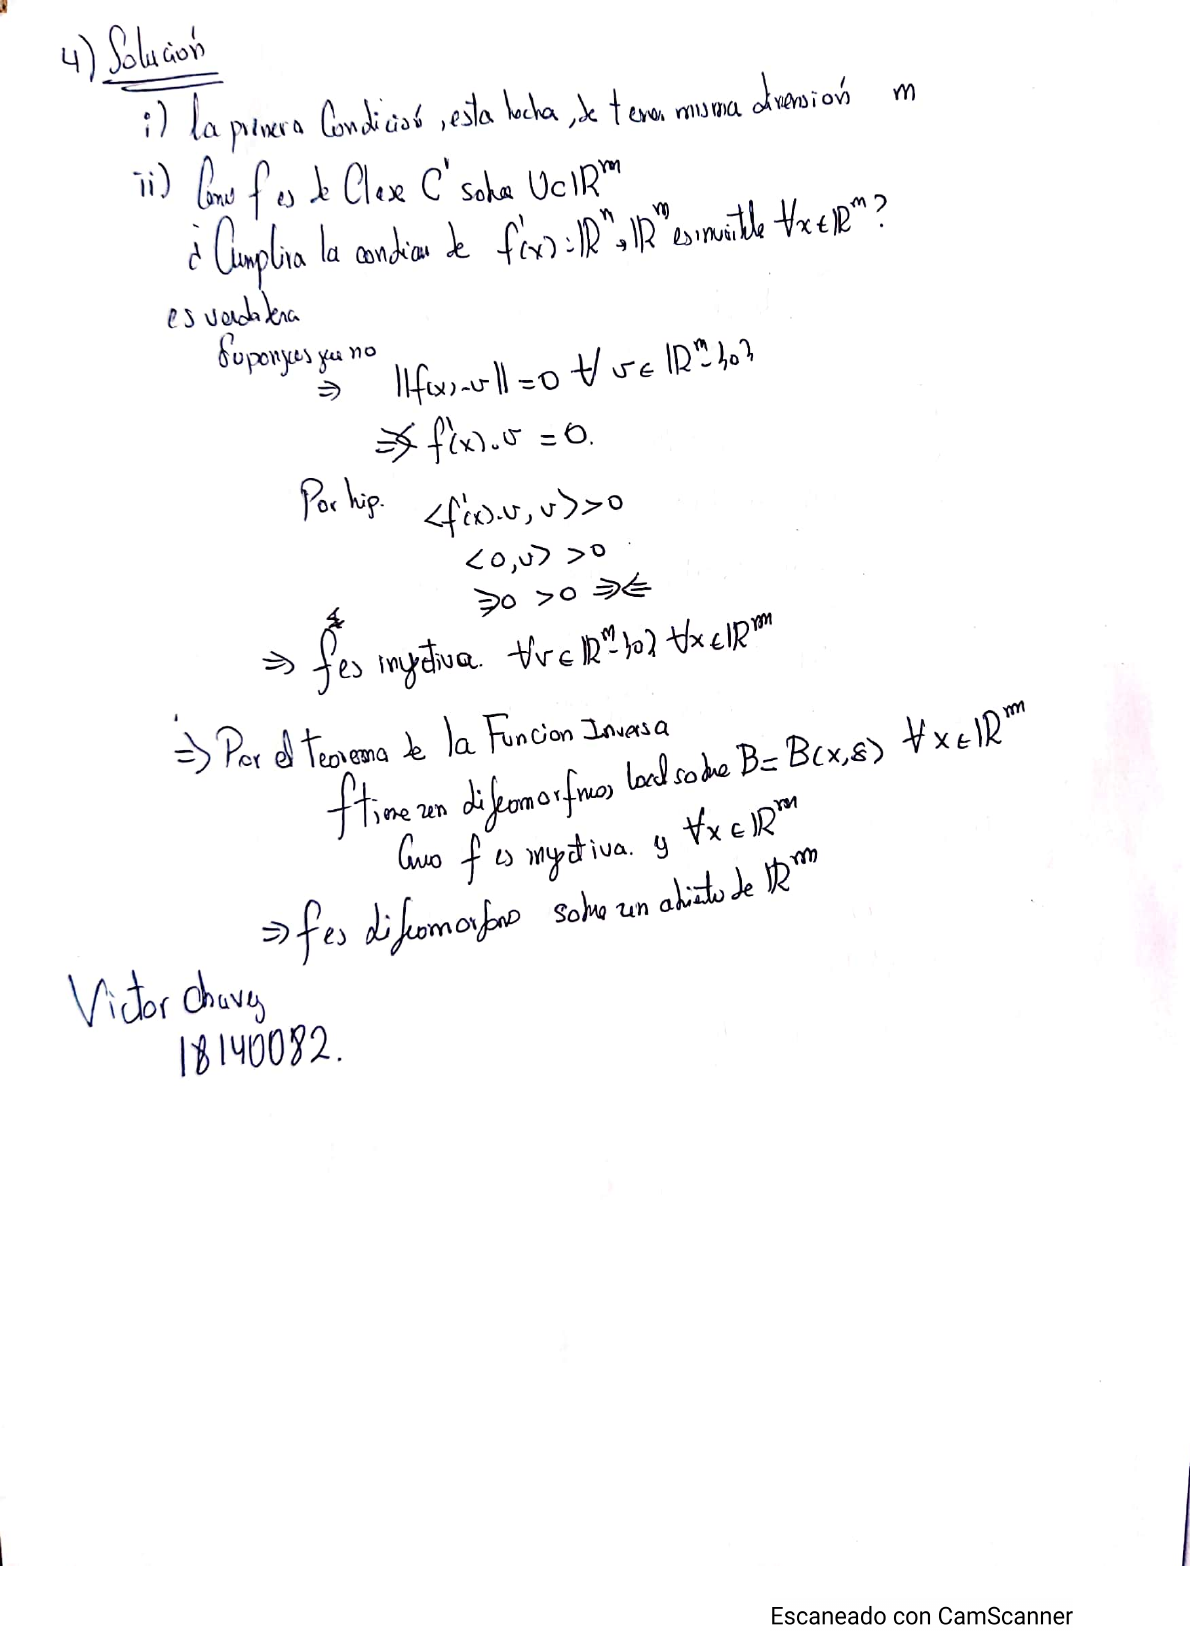 4) Solución
i) La primera Condición, esta hecha, de tener misma dimensión m
ii) Como f es de Clase C' sobre U⊂ℝᵐ
¿ Cumplira la condicion de f'(x):ℝⁿ→ℝᵐ es invertible ∀x∈ℝᵐ?
es verdadera
Supongas que no
⇒ ||f(x)·v|| = 0 ∀ v∈ ℝᵐ-{0}
⇒ f'(x).v = 0.
Por hip. <f'(x).v, v> > 0
<0,v> > 0
⇒0 > 0 ⇒⇐
⇒ f es inyectiva. ∀v∈ℝᵐ-{0} ∀x∈ℝᵐ
⇒ Por el teorema de la Funcion Inversa
f tiene un difeomorfismo local sobre B= B(x,δ) ∀x∈ℝᵐ
Como f es inyectiva. y ∀x∈ℝᵐ
⇒ f es difeomorfismo sobre un abierto de ℝᵐ
Victor Chavez
18140082.
Escaneado con CamScanner